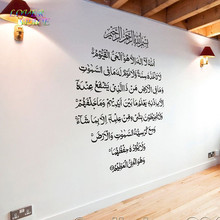 بِسْمِ اللهِ الرَّحْمٰنِ الرَّحِيمِ
اللهُ لَا إِلٰهَ إِلَّا هُوَ الْحَيُّ الْقَيُّومُ
لَا تَأْخُذُهُ سِنَةٌ وَلَا نَوْمٌ لَهُ مَا فِي السَّمٰوٰتِ
وَمَا فِي الْأَرْضِ مَنْ ذَا الَّذِي يَشْفَعُ عِنْدَهُ
إِلَّا بِإِذْنِهِ يَعْلَمُ مَا بَيْنَ أَيْدِيهِمْ وَمَا خَلْفَهُمْ
وَلَا يُحِيطُونَ بِشَيْءٍ مِنْ عِلْمِهِ إِلَّا بِمَا شَاءَ
وَسِعَ كُرْسِيُّهُ السَّمٰوٰتِ وَالْأَرْضَ
وَلَا يَئُودُهُ حِفْظُهُمَا
وَهُوَ الْعَلِيُّ الْعَظِيمُ